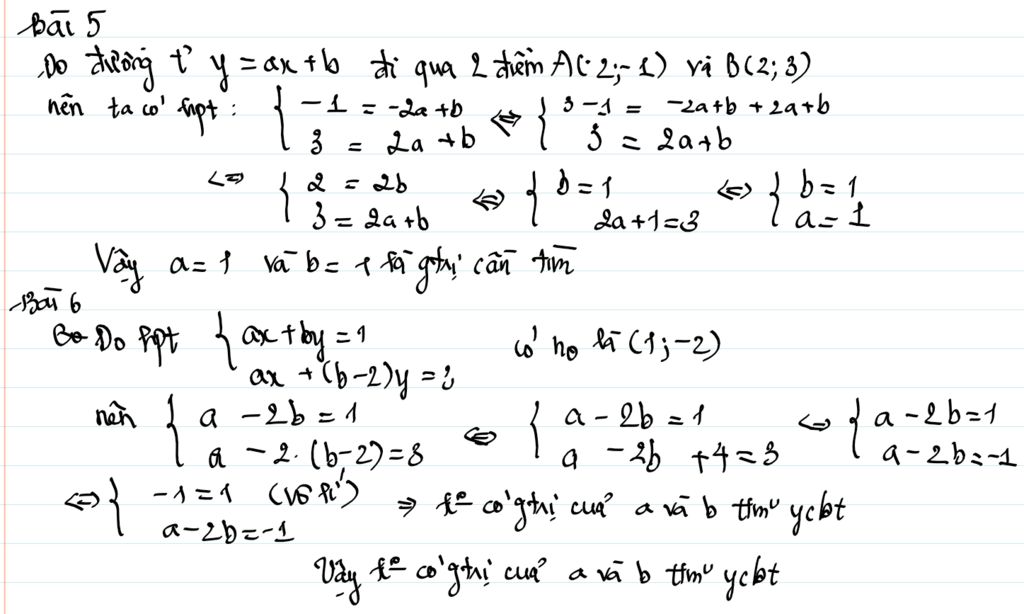 Bài 5
Do đường t² y = ax+b đi qua 2 điểm A(-2;-1) và B(2; 3)
nên ta có hpt: { -1 = -2a+b ; 3 = 2a+b ⇔ { 3-1 = -2a+b+2a+b ; 3 = 2a+b
⇔ { 2 = 2b ; 3 = 2a+b ⇔ { b = 1 ; 2a+1=3 ⇔ { b = 1 ; a = 1
Vậy a = 1 và b = 1 là gtrị cần tìm
Bài 6
Do hpt { ax+by = 1 ; ax + (b-2)y = 3 có no là (1; -2)
nên { a - 2b = 1 ; a - 2. (b-2) = 3 ⇔ { a - 2b = 1 ; a - 2b + 4 = 3 ⇔ { a - 2b = 1 ; a - 2b = -1
⇔ { -1 = 1 (vô lí) ; a - 2b = -1 ⇒ ko có gtrị của a và b tmu ycbt
Vậy ko có gtrị của a và b tmu ycbt